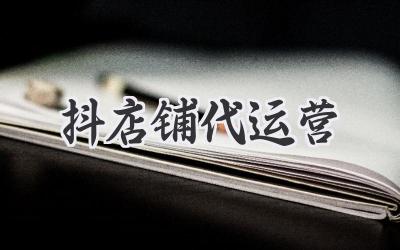 抖店铺代运营